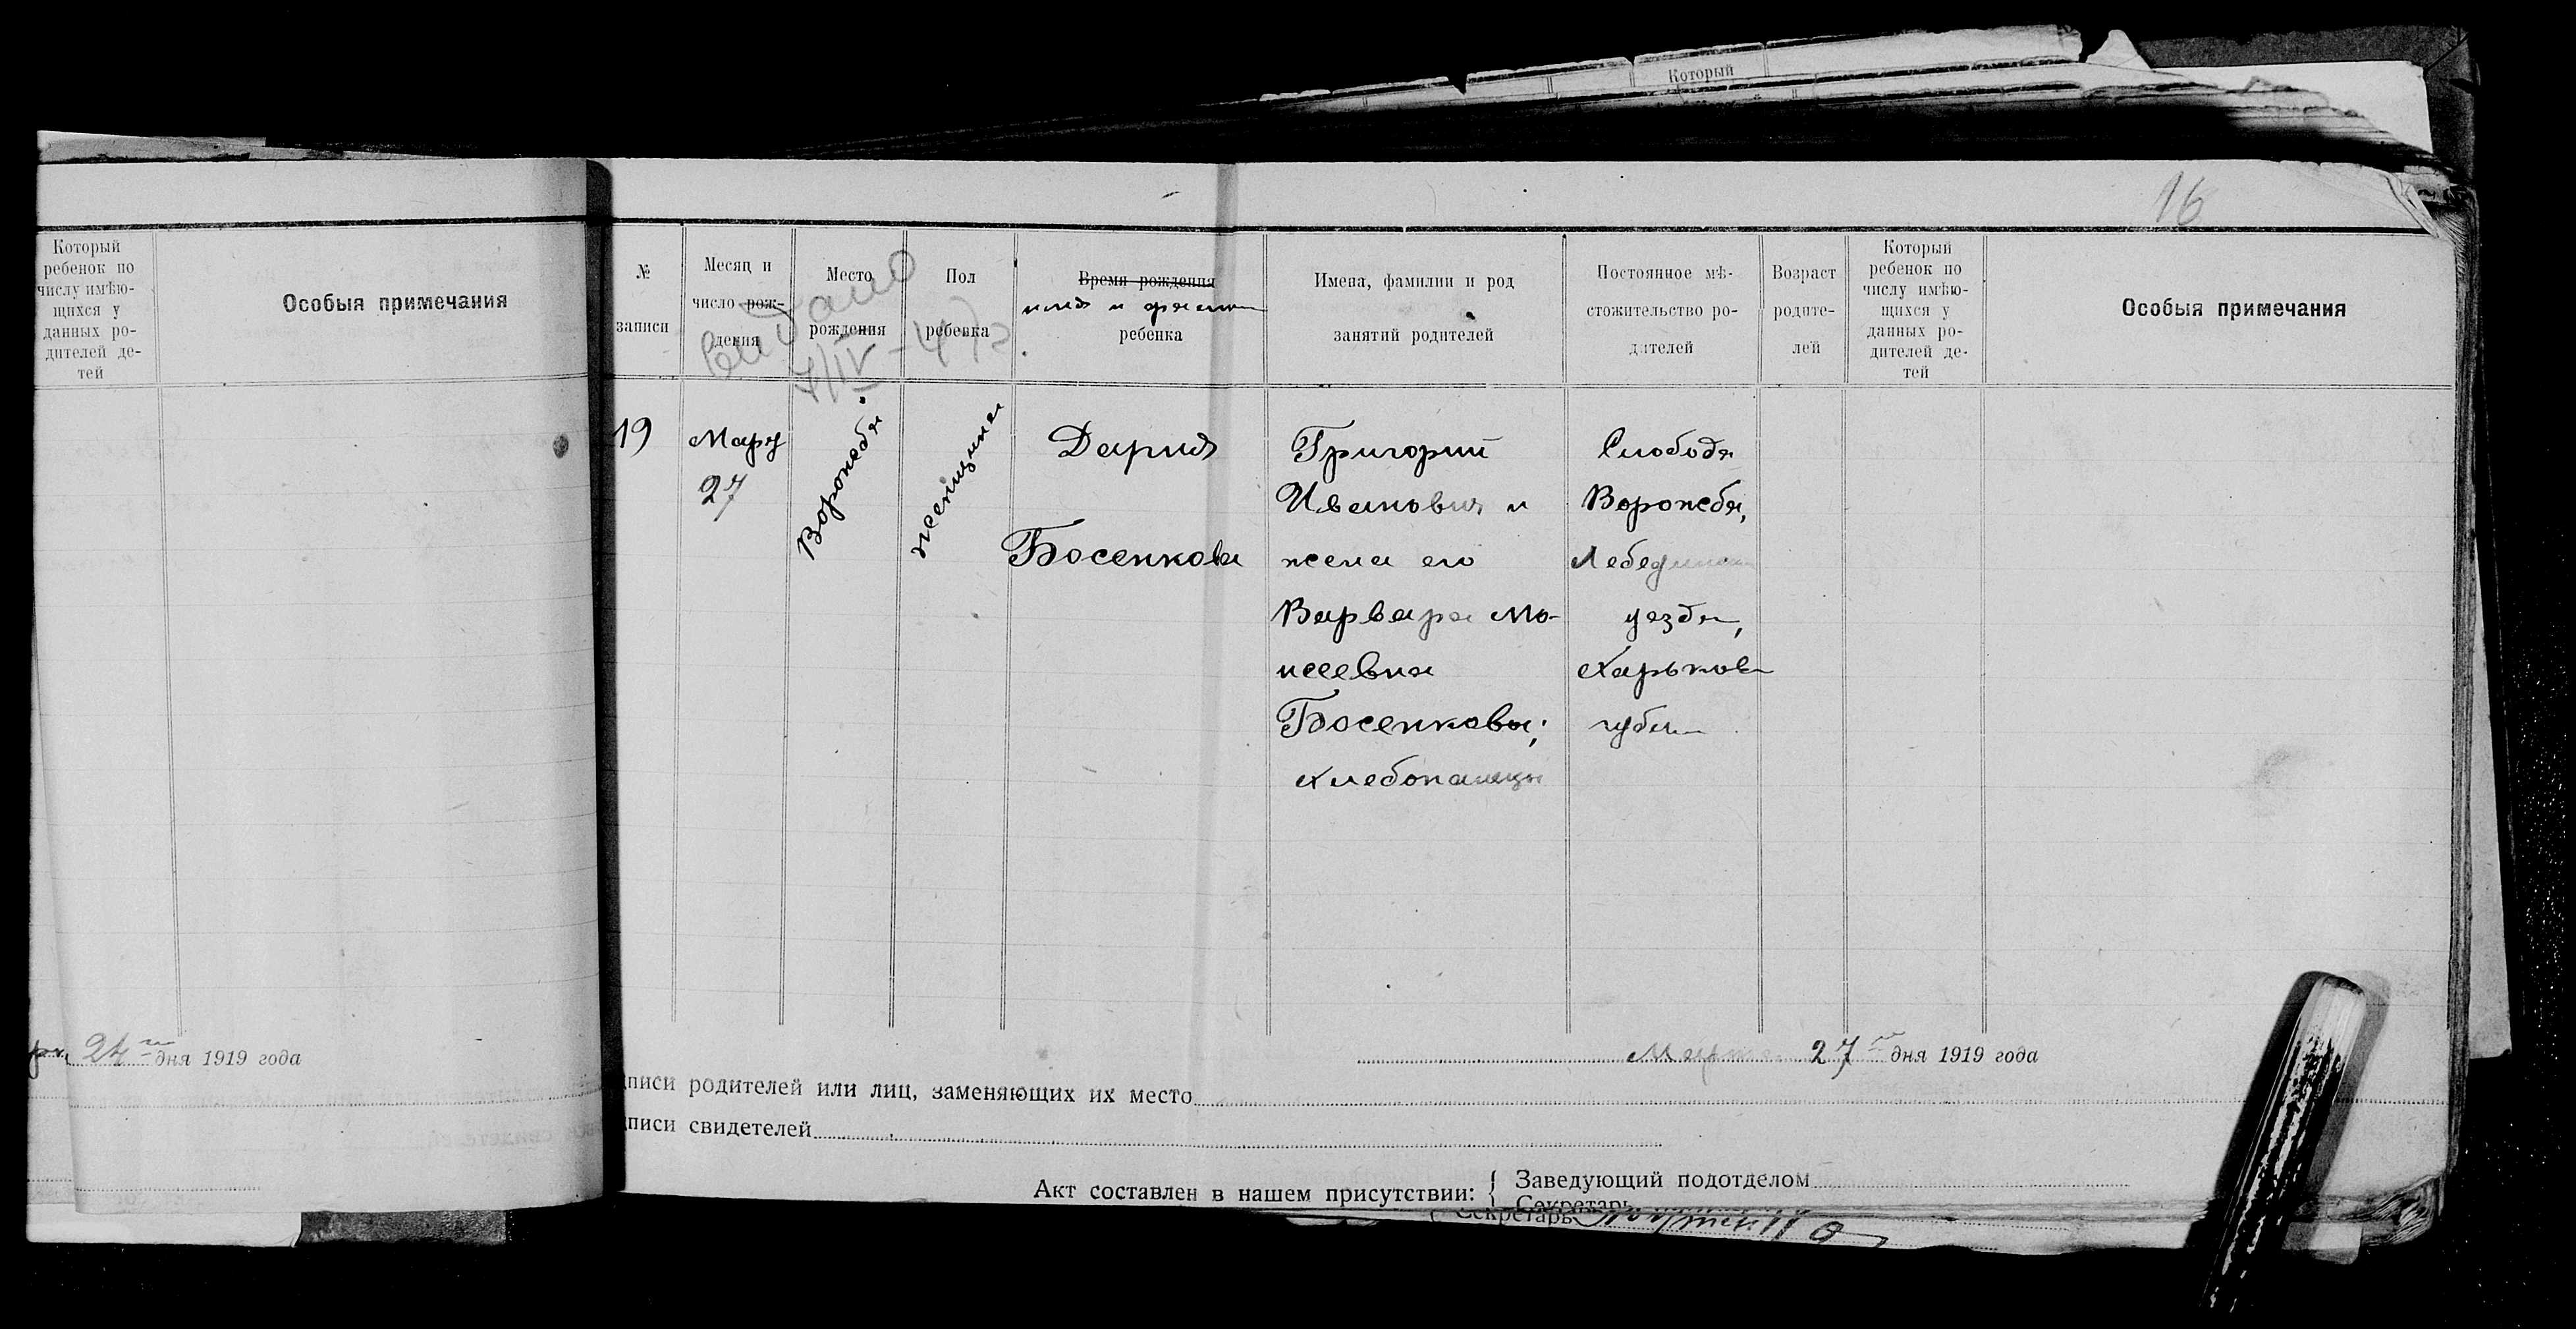 Который
16
Который
ребенок по
числу имѣю-
щихся у
данных ро-
дителей де-
тей
Особыя примечания
№
записи
Месяц и
число рож-
дения
Место
рождения
Пол
ребенка
Время рождения
имя и фамил
ребенка
Имена, фамилии и род
занятий родителей
Постоянное мѣ-
стожительство ро-
дителей
Возраст
родите-
лей
Который
ребенок по
числу имѣю-
щихся у
данных ро-
дителей де-
тей
Особыя примечания
Выдано
7/IV-47
19
Март
27
Ворожба
женщина
Дария
Босенкова
Григорий
Иванович и
жена его
Варвара Мо-
исеевна
Босенковы;
хлебопашцы
Слобода
Ворожба,
Лебединск
уезда,
Харьков
губ
24 го дня 1919 года
Марта 27 го дня 1919 года
писи родителей или лиц, заменяющих их место
писи свидетелей
Акт составлен в нашем присутствии:
Заведующий подотделом
Секретарь
Секретарь